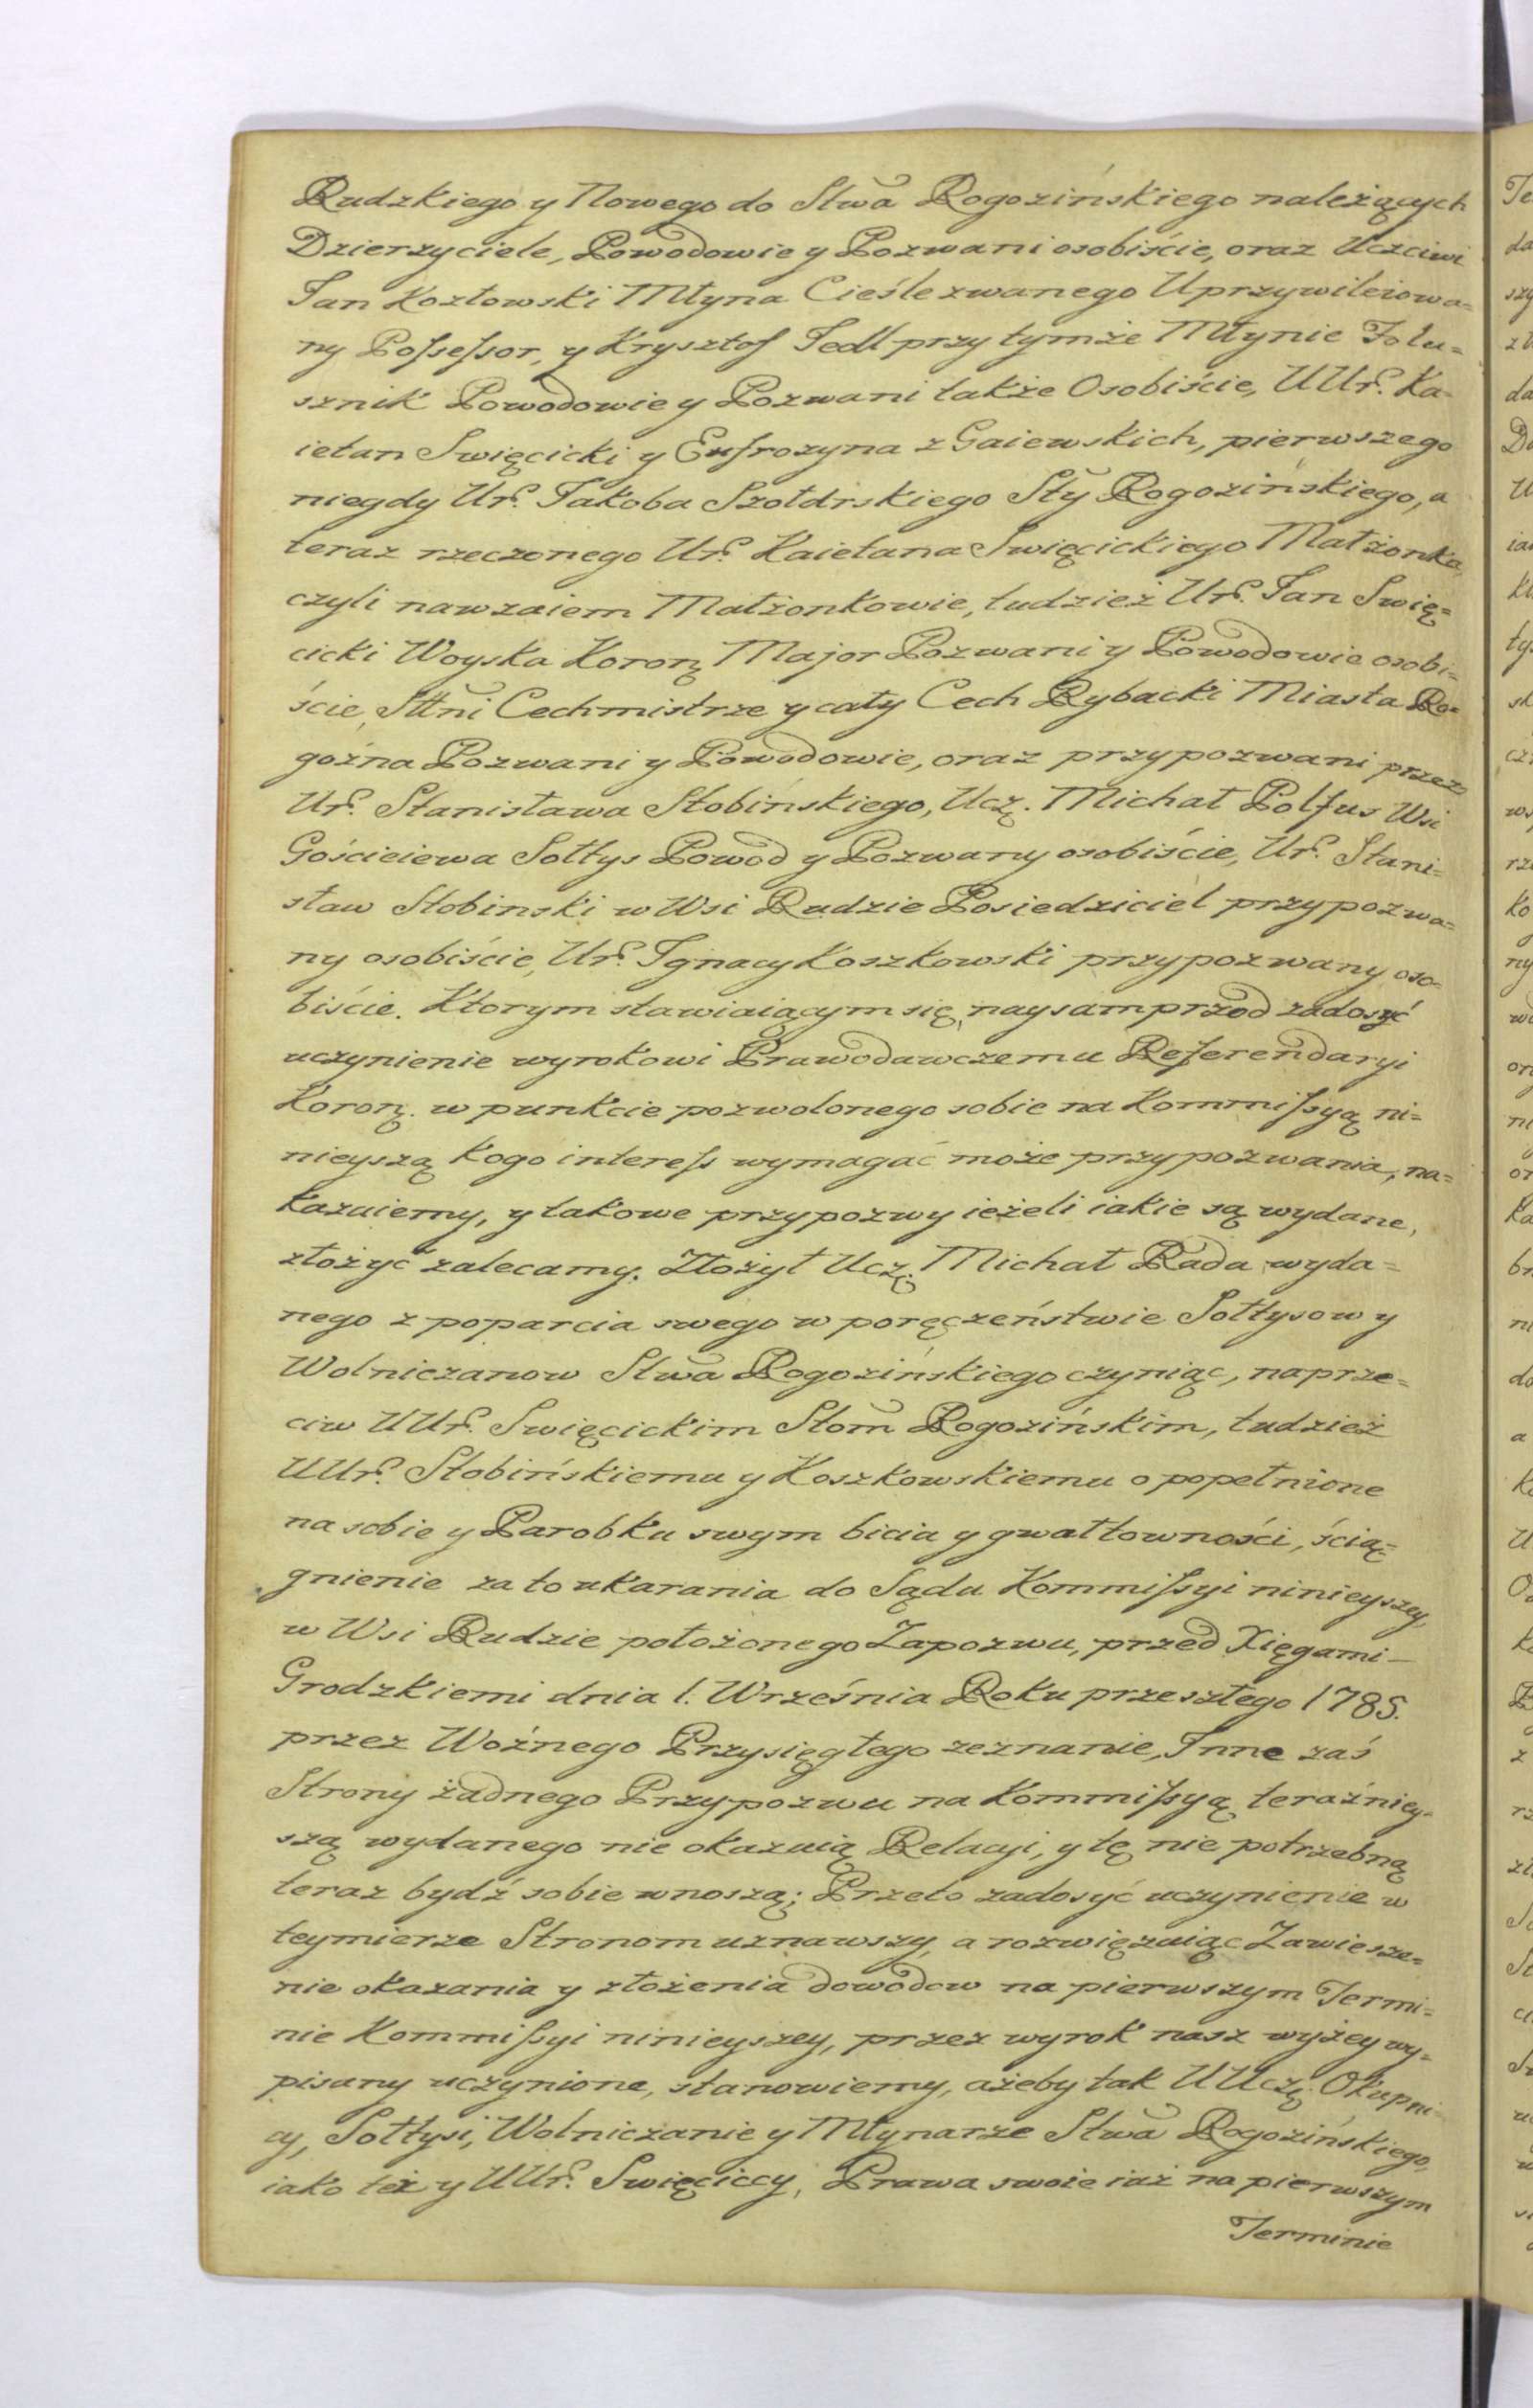 Rudzkiego y Nowego do Stwa Rogozińskiego należących
Dzierzyciele, Powodowie y Pozwani osobiście, oraz Uczciwi
Jan Kozłowski Młyna Cieśle zwanego Uprzywileiowa=
ny Possessor, y Krysztof Jedl przy tymże Młynie Folu=
sznik Powodowie y Pozwani także Osobiście, UUr. Ka=
ietan Swięcicki y Eufrozyna z Gaiewskich, pierwszego
niegdy Ur. Jakoba Szołdrskiego Sty Rogozińskiego, a
teraz rzeczonego Ur. Kaietana Swięcickiego Małżonka,
czyli nawzaiem Małżonkowie, tudzież Ur. Jan Swię=
cicki Woyska Koron. Major Pozwani y Powodowie osobi=
ście, Sttni Cechmistrze y cały Cech Rybacki Miasta Ro=
goźna Pozwani y Powodowie, oraz przypozwani przez
Ur. Stanisława Słobińskiego, Ucz. Michał Polfus Wsi
Gościeiewa Sołtys Powod y Pozwany osobiście, Ur. Stani=
sław Słobinski w Wsi Rudzie Posiedziciel przypozwa=
ny osobiście, Ur. Ignacy Koszkowski przypozwany oso=
biście. Ktorym stawiaiącym się, naysamprzod zadosyć
uczynienie wyrokowi Prawodawczemu Referendaryi
Koron. w punkcie pozwolonego sobie na Kommissyą ni=
nieyszą kogo interess wymagać może przypozwania, na=
kazuiemy, y takowe przypozwy ieżeli iakie są wydane,
złożyć zalecamy. Złożył Ucz. Michał Rada wyda=
nego z poparcia swego w poręczeństwie Sołtysow y
Wolniczanow Stwa Rogozińskiego czyniąc, naprze=
ciw UUr. Swięcickim Stom Rogozińskim, tudzież
UUr. Słobińskiemu y Koszkowskiemu o popełnione
na sobie y Parobku swym bicia y gwałtowności, ścią=
gnienie za to ukarania do Sądu Kommissyi ninieyszey,
w Wsi Rudzie położonego Zapozwu, przed Xięgami
Grodzkiemi dnia 1. Września Roku przeszłego 1785.
przez Woźnego Przysięgłego zeznanie, Inne zaś
Strony żadnego Przypozwu na Kommissyą teraźniey=
szą wydanego nie okazuią Relacyi, y tę nie potrzebną
teraz bydź sobie wnoszą; Przeto zadosyć uczynienie w
teymierze Stronom uznawszy, a rozwięzuiąc Zawiesze=
nie okazania y złożenia dowodow na pierwszym Termi=
nie Kommissyi ninieyszey, przez wyrok nasz wyżey wy=
pisany uczynione, stanowiemy, ażeby tak UUcz. Okupni=
cy, Sołtysi, Wolniczanie y Młynarze Stwa Rogozińskiego,
iako też y UUr. Swięciccy, Prawa swoie iaż na pierwszym
Terminie